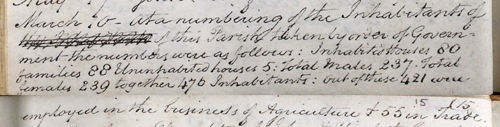 March 10 - At a numbering of the Inhabitants of
of this Parish taken by order of Govern-
ment the numbers were as follows: Inhabited houses 80
families 88 Uninhabited houses 5: Total Males 237. Total
females 239 together 476 Inhabitants: but of these 421 were
employed in the business of Agriculture & 55 in Trade.